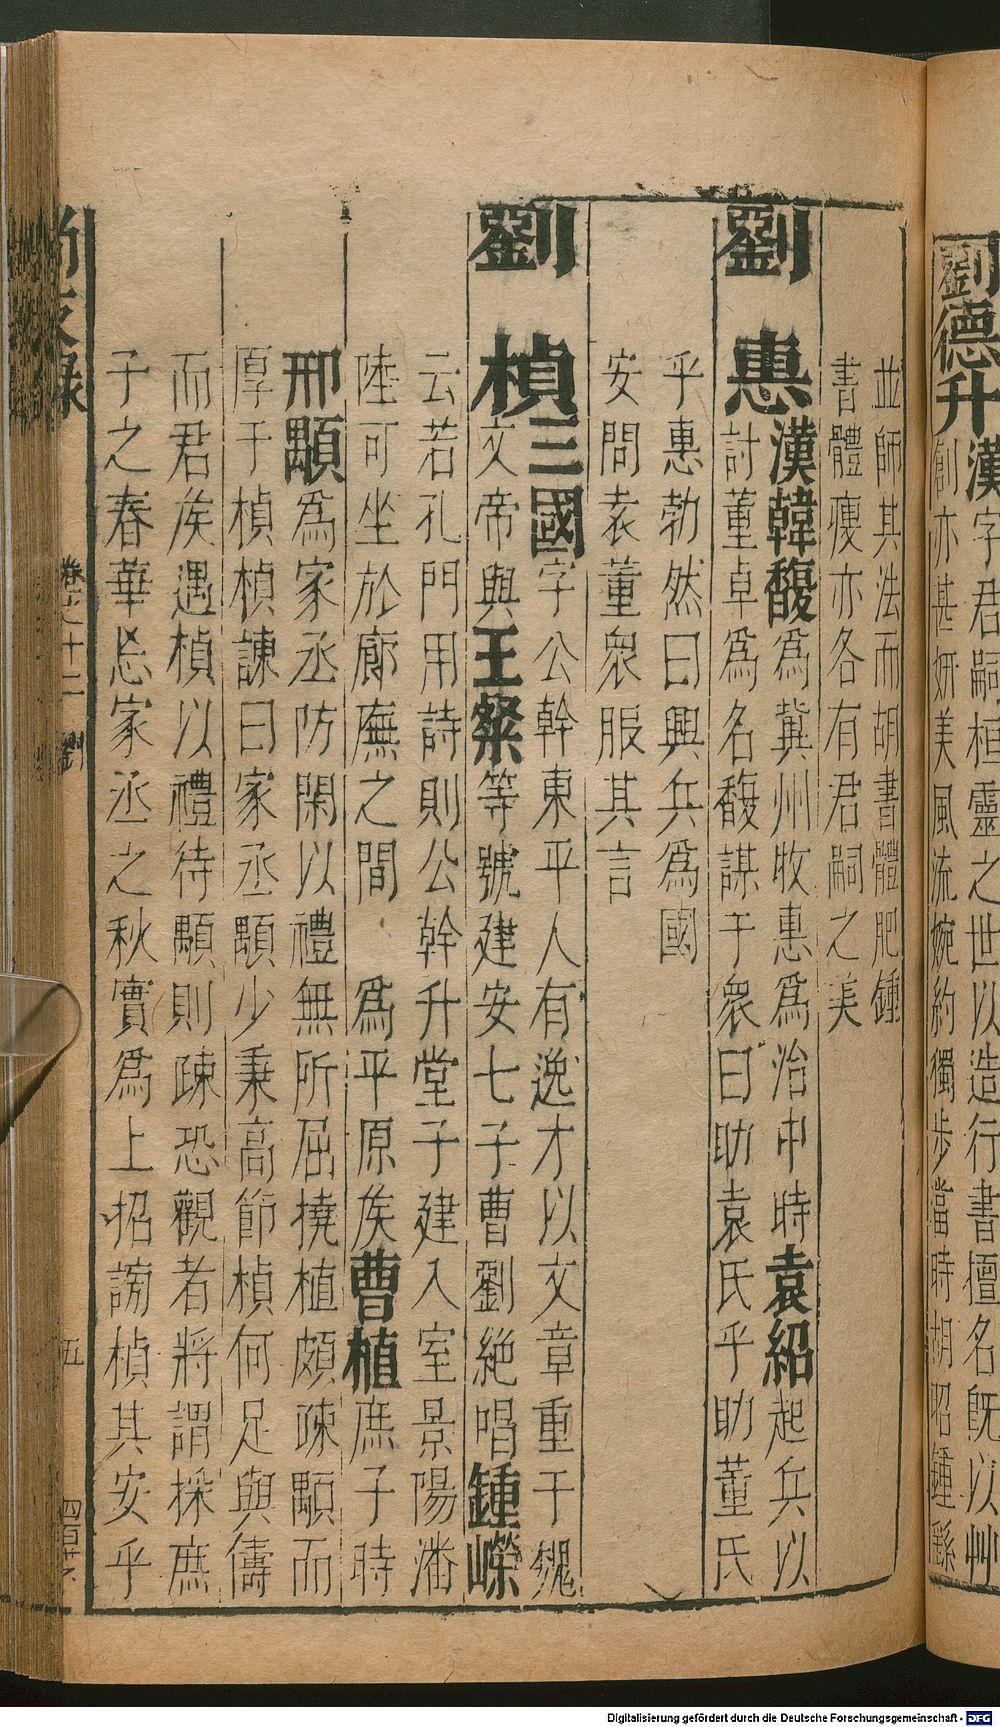 劉德升漢字君嗣桓靈之世以造行書擅名既以艸
創亦甚妍美風流婉約獨步當時胡昭鍾繇
並師其法而胡書體肥鍾
書體瘦亦各有君嗣之美
劉惠漢韓馥為冀州收惠為治中時袁紹起兵以
討董卓為名馥謀于衆曰助袁氏乎助董氏
乎惠勃然曰興兵為國
安問袁董衆服其言
劉楨三國字公幹東平人有逸才以文章重于魏
文帝與王粲等號建安七子曹劉絶唱鍾嶸
云若孔門用詩則公幹升堂子建入室景陽潘
陸可坐於廊廡之間 為平原矦曹植庶子時
邢顒為家丞防閑以禮無所屈撓植頗疎顒而
厚于楨楨諫曰家丞顒少秉高節楨何足與儔
而君矦遇楨以禮待顒則疎恐觀者將謂採庶
子之春華忘家丞之秋實為上招謗楨其安乎
尚友錄 卷之十二 劉 五
Digitalisierung gefördert durch die Deutsche Forschungsgemeinschaft - DFG